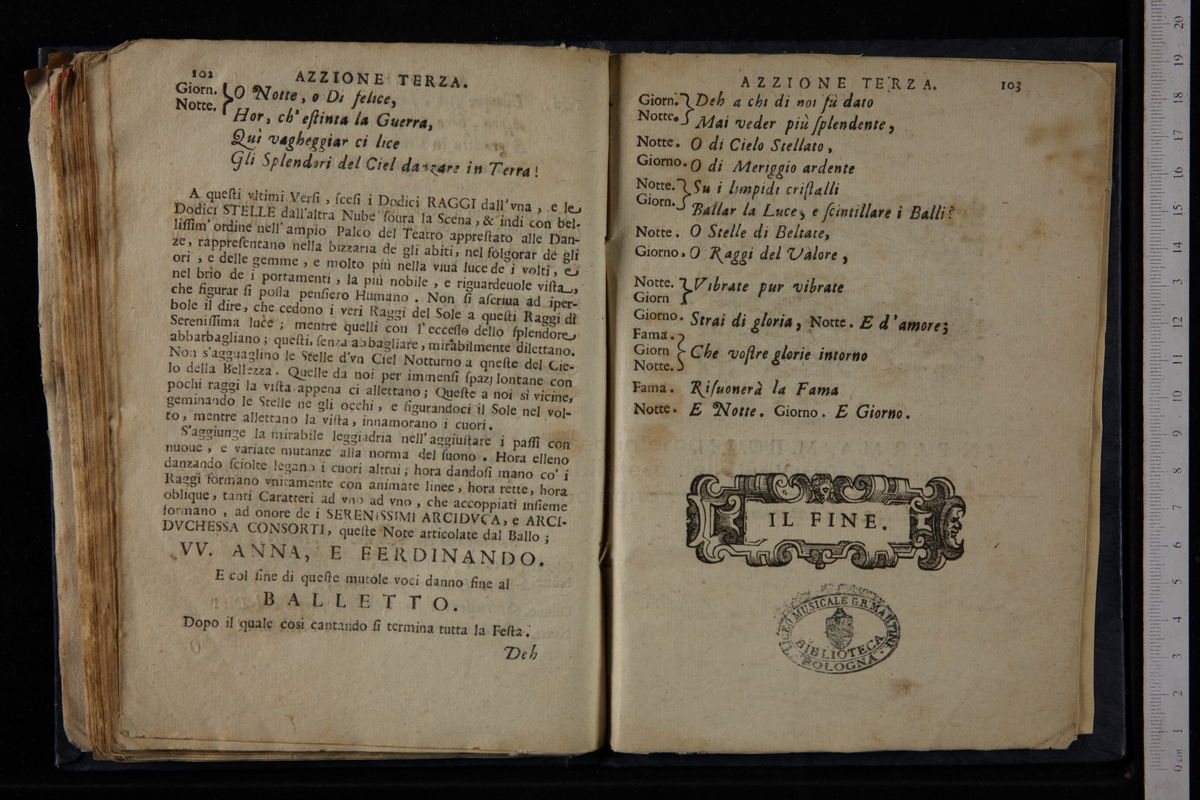 102 AZZIONE TERZA.
Giorn. Notte. } O Notte, o Di felice,
Hor, ch' eſtinta la Guerra,
Quì vagheggiar ci lice
Gli Splendori del Ciel danzare in Terra!
A queſti vltimi Verſi, ſceſi i Dodici RAGGI dall'vna, e le
Dodici STELLE dall'altra Nube ſoura la Scena, & indi con bel-
liſſim' ordine nell' ampio Palco del Teatro appreſtato alle Dan-
ze, rappreſentano nella bizzaria de gli abiti, nel folgorar de gli
ori, e delle gemme, e molto più nella viua luce de i volti, e
nel brìo de i portamenti, la più nobile, e riguardeuole viſta,
che figurar ſi poſſa penſiero Humano. Non ſi aſcriua ad iper-
bole il dire, che cedono i veri Raggi del Sole a queſti Raggi di
Sereniſſima luce; mentre quelli con l'ecceſſo dello ſplendore
abbarbagliano; queſti, ſenza abbagliare, mirabilmente dilettano.
Non s'agguaglino le Stelle d'vn Ciel Notturno a qneſte del Cie-
lo della Bellezza. Quelle da noi per immenſi ſpazj lontane con
pochi raggi la viſta appena ci allettano; Queſte a noi sì vicine,
geminando le Stelle ne gli occhi, e figurandoci il Sole nel vol-
to, mentre allettano la viſta, innamorano i cuori.
S'aggiunge la mirabile leggiadria nell'aggiuſtare i paſſi con
nuoue, e variate mutanze alla norma del ſuono. Hora elleno
danzando ſciolte legano i cuori altrui; hora dandoſi mano co' i
Raggi formano vnitamente con animate linee, hora rette, hora
oblique, tanti Caratteri ad vno ad vno, che accoppiati inſieme
formano, ad onore de i SERENISSIMI ARCIDVCA, e ARCI-
DVCHESSA CONSORTI, queſte Note articolate dal Ballo;
VV. ANNA, E FERDINANDO.
E col fine di queſte mutole voci danno fine al
BALLETTO.
Dopo il quale così cantando ſi termina tutta la Feſta.
Deh
AZZIONE TERZA. 103
Giorn. Notte. } Deh a chi di noi fù dato
Mai veder più ſplendente,
Notte. O di Cielo Stellato,
Giorno. O di Meriggio ardente
Notte. Giorn. } Su i limpidi criſtalli
Ballar la Luce, e ſcintillare i Balli?
Notte. O Stelle di Beltate,
Giorno. O Raggi del Valore,
Notte. Giorn } Vibrate pur vibrate
Giorno. Strai di gloria, Notte. E d'amore;
Fama. Giorn Notte. } Che voſtre glorie intorno
Fama. Riſuonerà la Fama
Notte. E Notte. Giorno. E Giorno.
IL FINE.
LICEO MUSICALE G.B. MARTINI
BIBLIOTECA
BOLOGNA